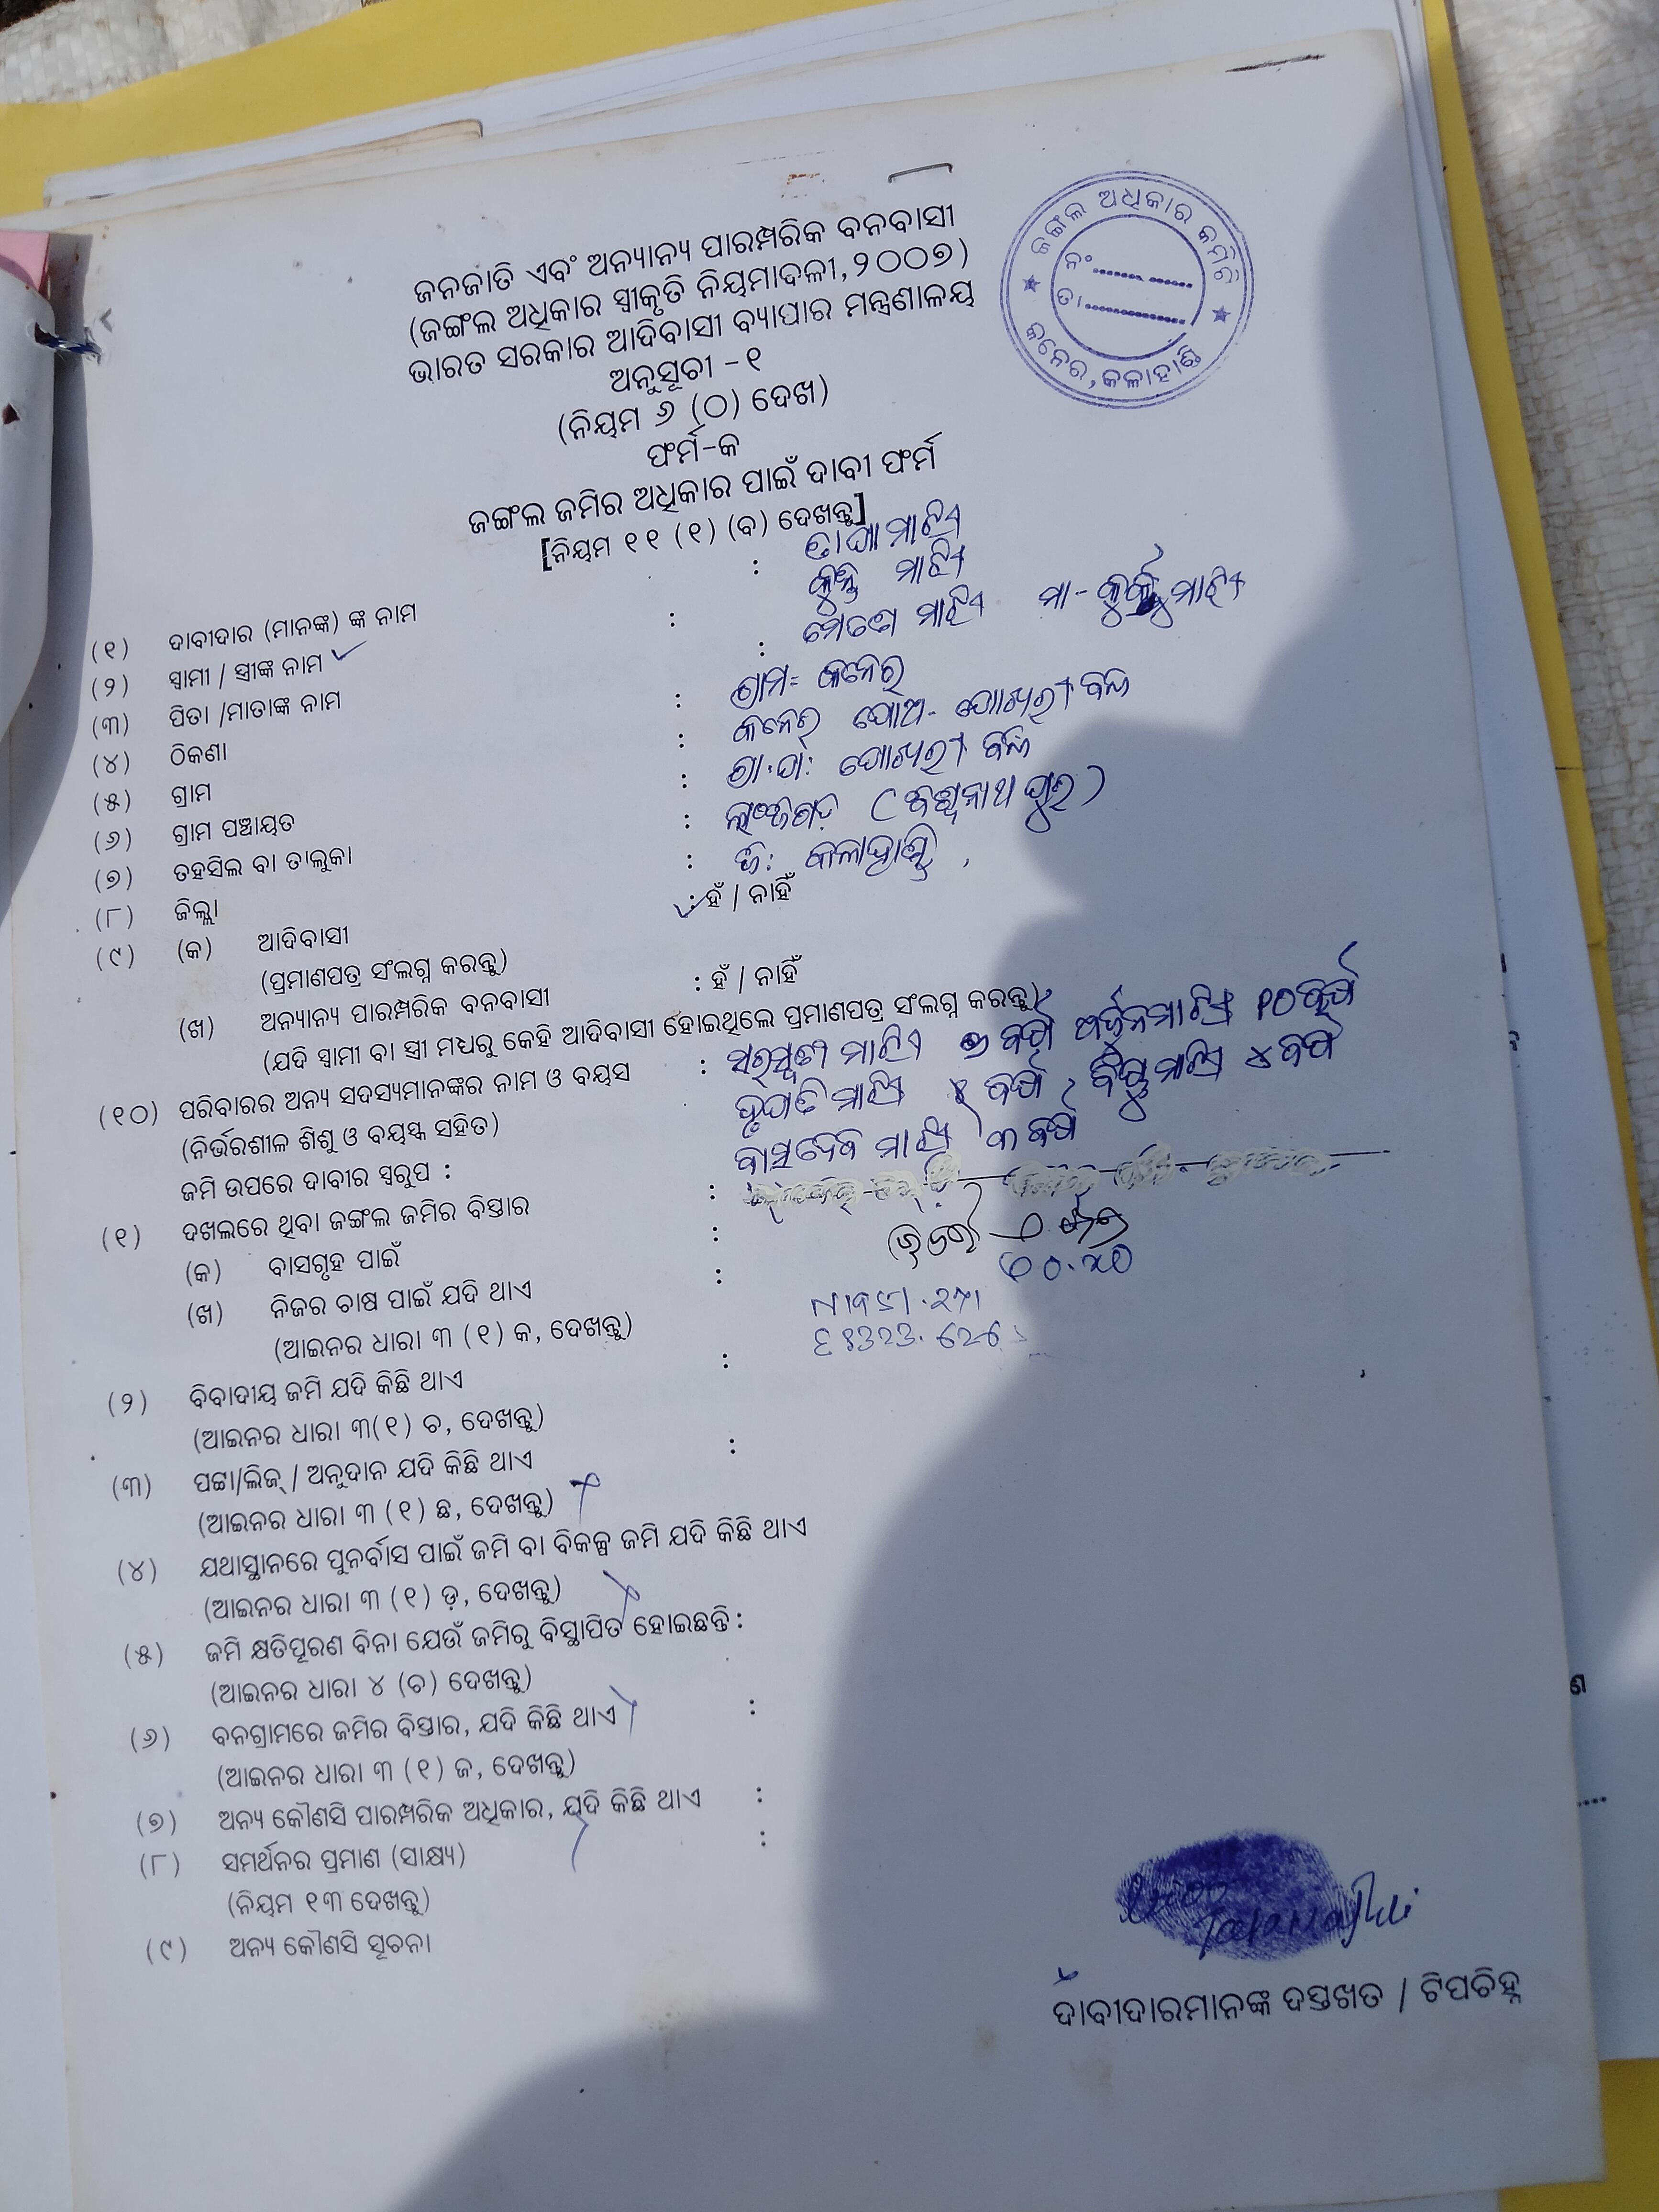 ଜନଜାତି ଏବଂ ଅନ୍ୟାନ୍ୟ ପାରମ୍ପରିକ ବନବାସୀ
(ଜଙ୍ଗଲ ଅଧିକାର ସ୍ୱୀକୃତି ନିୟମାବଳୀ,୨୦୦୭)
ଭାରତ ସରକାର ଆଦିବାସୀ ବ୍ୟାପାର ମନ୍ତ୍ରଣାଳୟ
ଅନୁସୂଚୀ -୧
(ନିୟମ ୬ (ଠ) ଦେଖ)
ଫର୍ମ-କ
ଜଙ୍ଗଲ ଜମିର ଅଧିକାର ପାଇଁ ଦାବୀ ଫର୍ମ
[ନିୟମ ୧୧ (୧) (ବ) ଦେଖନ୍ତୁ]
ଜଙ୍ଗଲ ଅଧିକାର କମିଟି
ନଂ..............
ତା..............
କନେର, କଳାହାଣ୍ଡି
(୧) ଦାବୀଦାର (ମାନଙ୍କ) ଙ୍କ ନାମ : ମାଝି
(୨) ସ୍ୱାମୀ / ସ୍ତ୍ରୀଙ୍କ ନାମ : ମାଝି
(୩) ପିତା /ମାତାଙ୍କ ନାମ : ମାଝି ମା- ମାଝି
(୪) ଠିକଣା : ଗ୍ରାମ= କନେର
(୫) ଗ୍ରାମ : କନେର ପୋଅ- ପୋଖରୀ ବନ୍ଧ
(୬) ଗ୍ରାମ ପଞ୍ଚାୟତ : ଗ୍ରା.ପ: ପୋଖରୀ ବନ୍ଧ
(୭) ତହସିଲ ବା ତାଲୁକା : ଲାଞ୍ଜିଗଡ଼ (ବିଶ୍ୱନାଥ ପୁର)
(୮) ଜିଲ୍ଲା : ଜି: କଳାହାଣ୍ଡି,
(୯) (କ) ଆଦିବାସୀ : ହଁ / ନାହିଁ
(ପ୍ରମାଣପତ୍ର ସଂଲଗ୍ନ କରନ୍ତୁ)
(ଖ) ଅନ୍ୟାନ୍ୟ ପାରମ୍ପରିକ ବନବାସୀ : ହଁ / ନାହିଁ
(ଯଦି ସ୍ୱାମୀ ବା ସ୍ତ୍ରୀ ମଧ୍ୟରୁ କେହି ଆଦିବାସୀ ହୋଇଥିଲେ ପ୍ରମାଣପତ୍ର ସଂଲଗ୍ନ କରନ୍ତୁ)
(୧୦) ପରିବାରର ଅନ୍ୟ ସଦସ୍ୟମାନଙ୍କର ନାମ ଓ ବୟସ : ମାଝି ବର୍ଷ ମାଝି ୧୦ ବର୍ଷ
(ନିର୍ଭରଶୀଳ ଶିଶୁ ଓ ବୟସ୍କ ସହିତ) ମାଝି ବର୍ଷ, ମାଝି ୪ ବର୍ଷ
ଜମି ଉପରେ ଦାବୀର ସ୍ୱରୂପ : ମାଝି ୩ ବର୍ଷ
(୧) ଦଖଲରେ ଥିବା ଜଙ୍ଗଲ ଜମିର ବିସ୍ତାର :
(କ) ବାସଗୃହ ପାଇଁ :
(ଖ) ନିଜର ଚାଷ ପାଇଁ ଯଦି ଥାଏ :
(ଆଇନର ଧାରା ୩ (୧) କ, ଦେଖନ୍ତୁ)
(୨) ବିବାଦୀୟ ଜମି ଯଦି କିଛି ଥାଏ :
(ଆଇନର ଧାରା ୩(୧) ଚ, ଦେଖନ୍ତୁ)
(୩) ପଟ୍ଟା/ଲିଜ୍ / ଅନୁଦାନ ଯଦି କିଛି ଥାଏ :
(ଆଇନର ଧାରା ୩ (୧) ଛ, ଦେଖନ୍ତୁ)
(୪) ଯଥାସ୍ଥାନରେ ପୁନର୍ବାସ ପାଇଁ ଜମି ବା ବିକଳ୍ପ ଜମି ଯଦି କିଛି ଥାଏ
(ଆଇନର ଧାରା ୩ (୧) ଡ଼, ଦେଖନ୍ତୁ)
(୫) ଜମି କ୍ଷତିପୂରଣ ବିନା ଯେଉଁ ଜମିରୁ ବିସ୍ଥାପିତ ହୋଇଛନ୍ତି :
(ଆଇନର ଧାରା ୪ (ଚ) ଦେଖନ୍ତୁ)
(୬) ବନଗ୍ରାମରେ ଜମିର ବିସ୍ତାର, ଯଦି କିଛି ଥାଏ :
(ଆଇନର ଧାରା ୩ (୧) ଜ, ଦେଖନ୍ତୁ)
(୭) ଅନ୍ୟ କୌଣସି ପାରମ୍ପରିକ ଅଧିକାର, ଯଦି କିଛି ଥାଏ :
(୮) ସମର୍ଥନର ପ୍ରମାଣ (ସାକ୍ଷ୍ୟ) :
(ନିୟମ ୧୩ ଦେଖନ୍ତୁ)
(୯) ଅନ୍ୟ କୌଣସି ସୂଚନା
ଦାବୀଦାରମାନଙ୍କ ଦସ୍ତଖତ / ଟିପଚିହ୍ନ